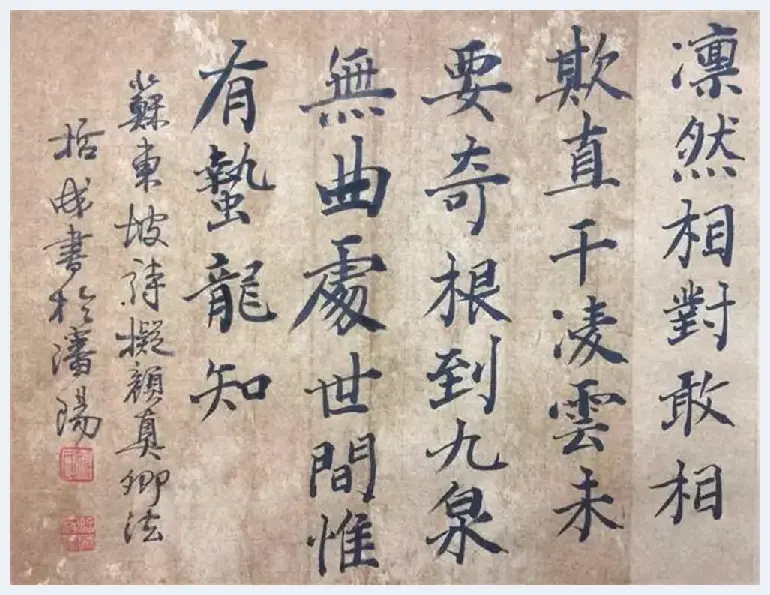 凛然相對敢相
欺直干凌雲未
要奇根到九泉
無曲處世間惟
有蟄龍知
蘇東坡詩擬顏真卿法
括成書於瀋陽